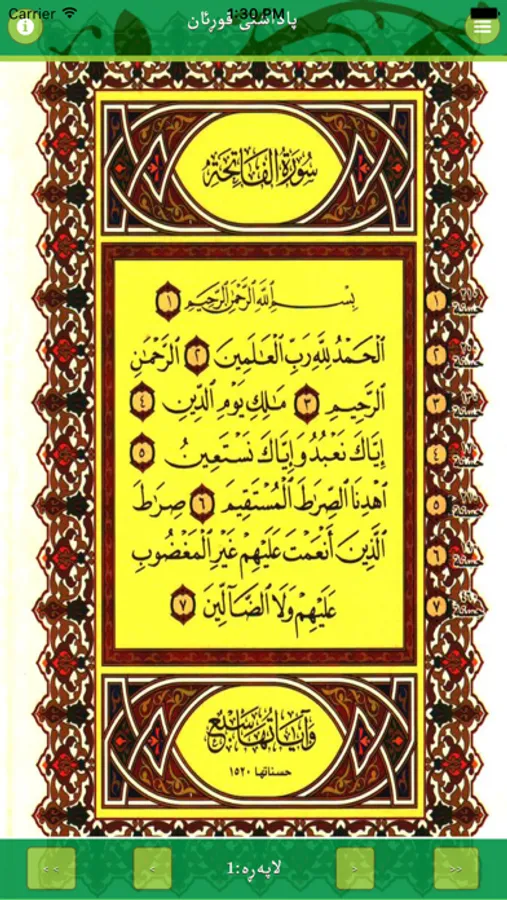 Carrier 1:30 PM
پاداشتی قورئان
سُورَةُ الفَاتِحَة
بِسْمِ ٱللَّهِ ٱلرَّحْمَٰنِ ٱلرَّحِيمِ ١
ٱلْحَمْدُ لِلَّهِ رَبِّ ٱلْعَـٰلَمِينَ ٢ ٱلرَّحْمَـٰنِ
ٱلرَّحِيمِ ٣ مَـٰلِكِ يَوْمِ ٱلدِّينِ ٤
إِيَّاكَ نَعْبُدُ وَإِيَّاكَ نَسْتَعِينُ ٥
ٱهْدِنَا ٱلصِّرَٰطَ ٱلْمُسْتَقِيمَ ٦ صِرَٰطَ
ٱلَّذِينَ أَنْعَمْتَ عَلَيْهِمْ غَيْرِ ٱلْمَغْضُوبِ
عَلَيْهِمْ وَلَا ٱلضَّآلِّينَ ٧
١
٢
٣
٤
٥
٦
٧
وَآيَاتُهَا سَبْعٌ
حسناتها ١٥٢٠
<< < لاپەڕە:1 > >>